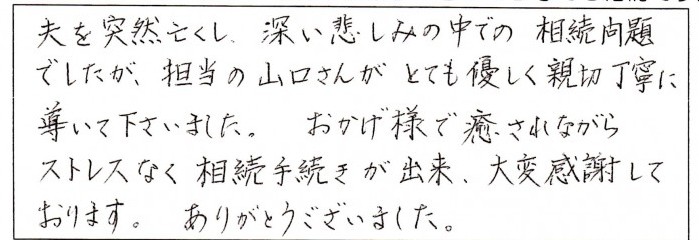 夫を突然亡くし、深い悲しみの中での 相続問題
でしたが、担当の山口さんが とても優しく親切丁寧に
導いて下さいました。 おかげ様で癒されながら
ストレスなく相続手続きが出来、大変感謝して
おります。 ありがとうございました。